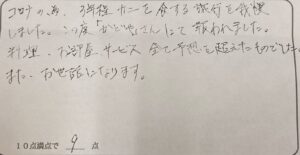 コロナの為、3年程カニを食する旅行を我慢
しました。この度「かどや」さんにて報われました。
料理、お部屋、サービス全て予想を超えたものでした。
また、お世話になります。
10点満点で 9 点